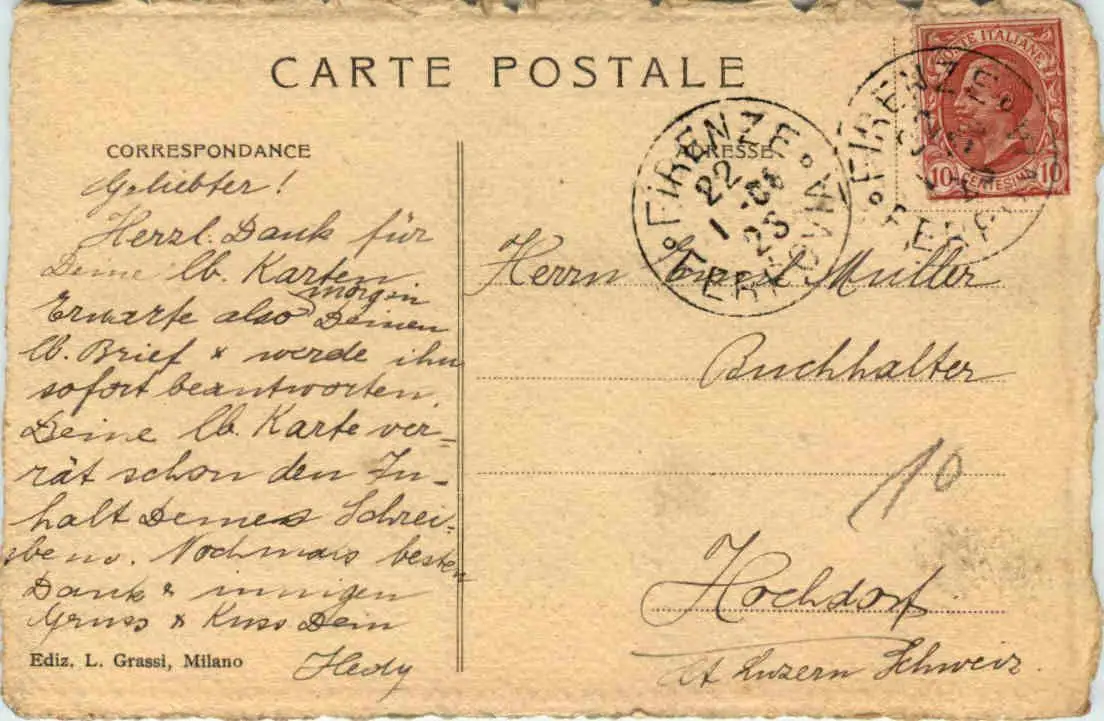 CARTE POSTALE
CORRESPONDANCE
Geliebter!
Herzl. Dank für
Deine lb. Karten
morgen
Erwarte also Deinen
lb. Brief & werde ihn
sofort beantworten.
Deine lb. Karte ver=
rät schon den In-
halt Deines Schrei-
bens. Nochmals besten
Dank & innigen
Gruss & Kuss Dein
Hedy
Ediz. L. Grassi, Milano
ADRESSE
FIRENZE
22
1-08
FERROVIA
FIRENZE
POSTE ITALIANE
10 CENTESIMI 10
Herrn Müller
Buchhalter
10
Hochdorf
Ct Luzern Schweiz.